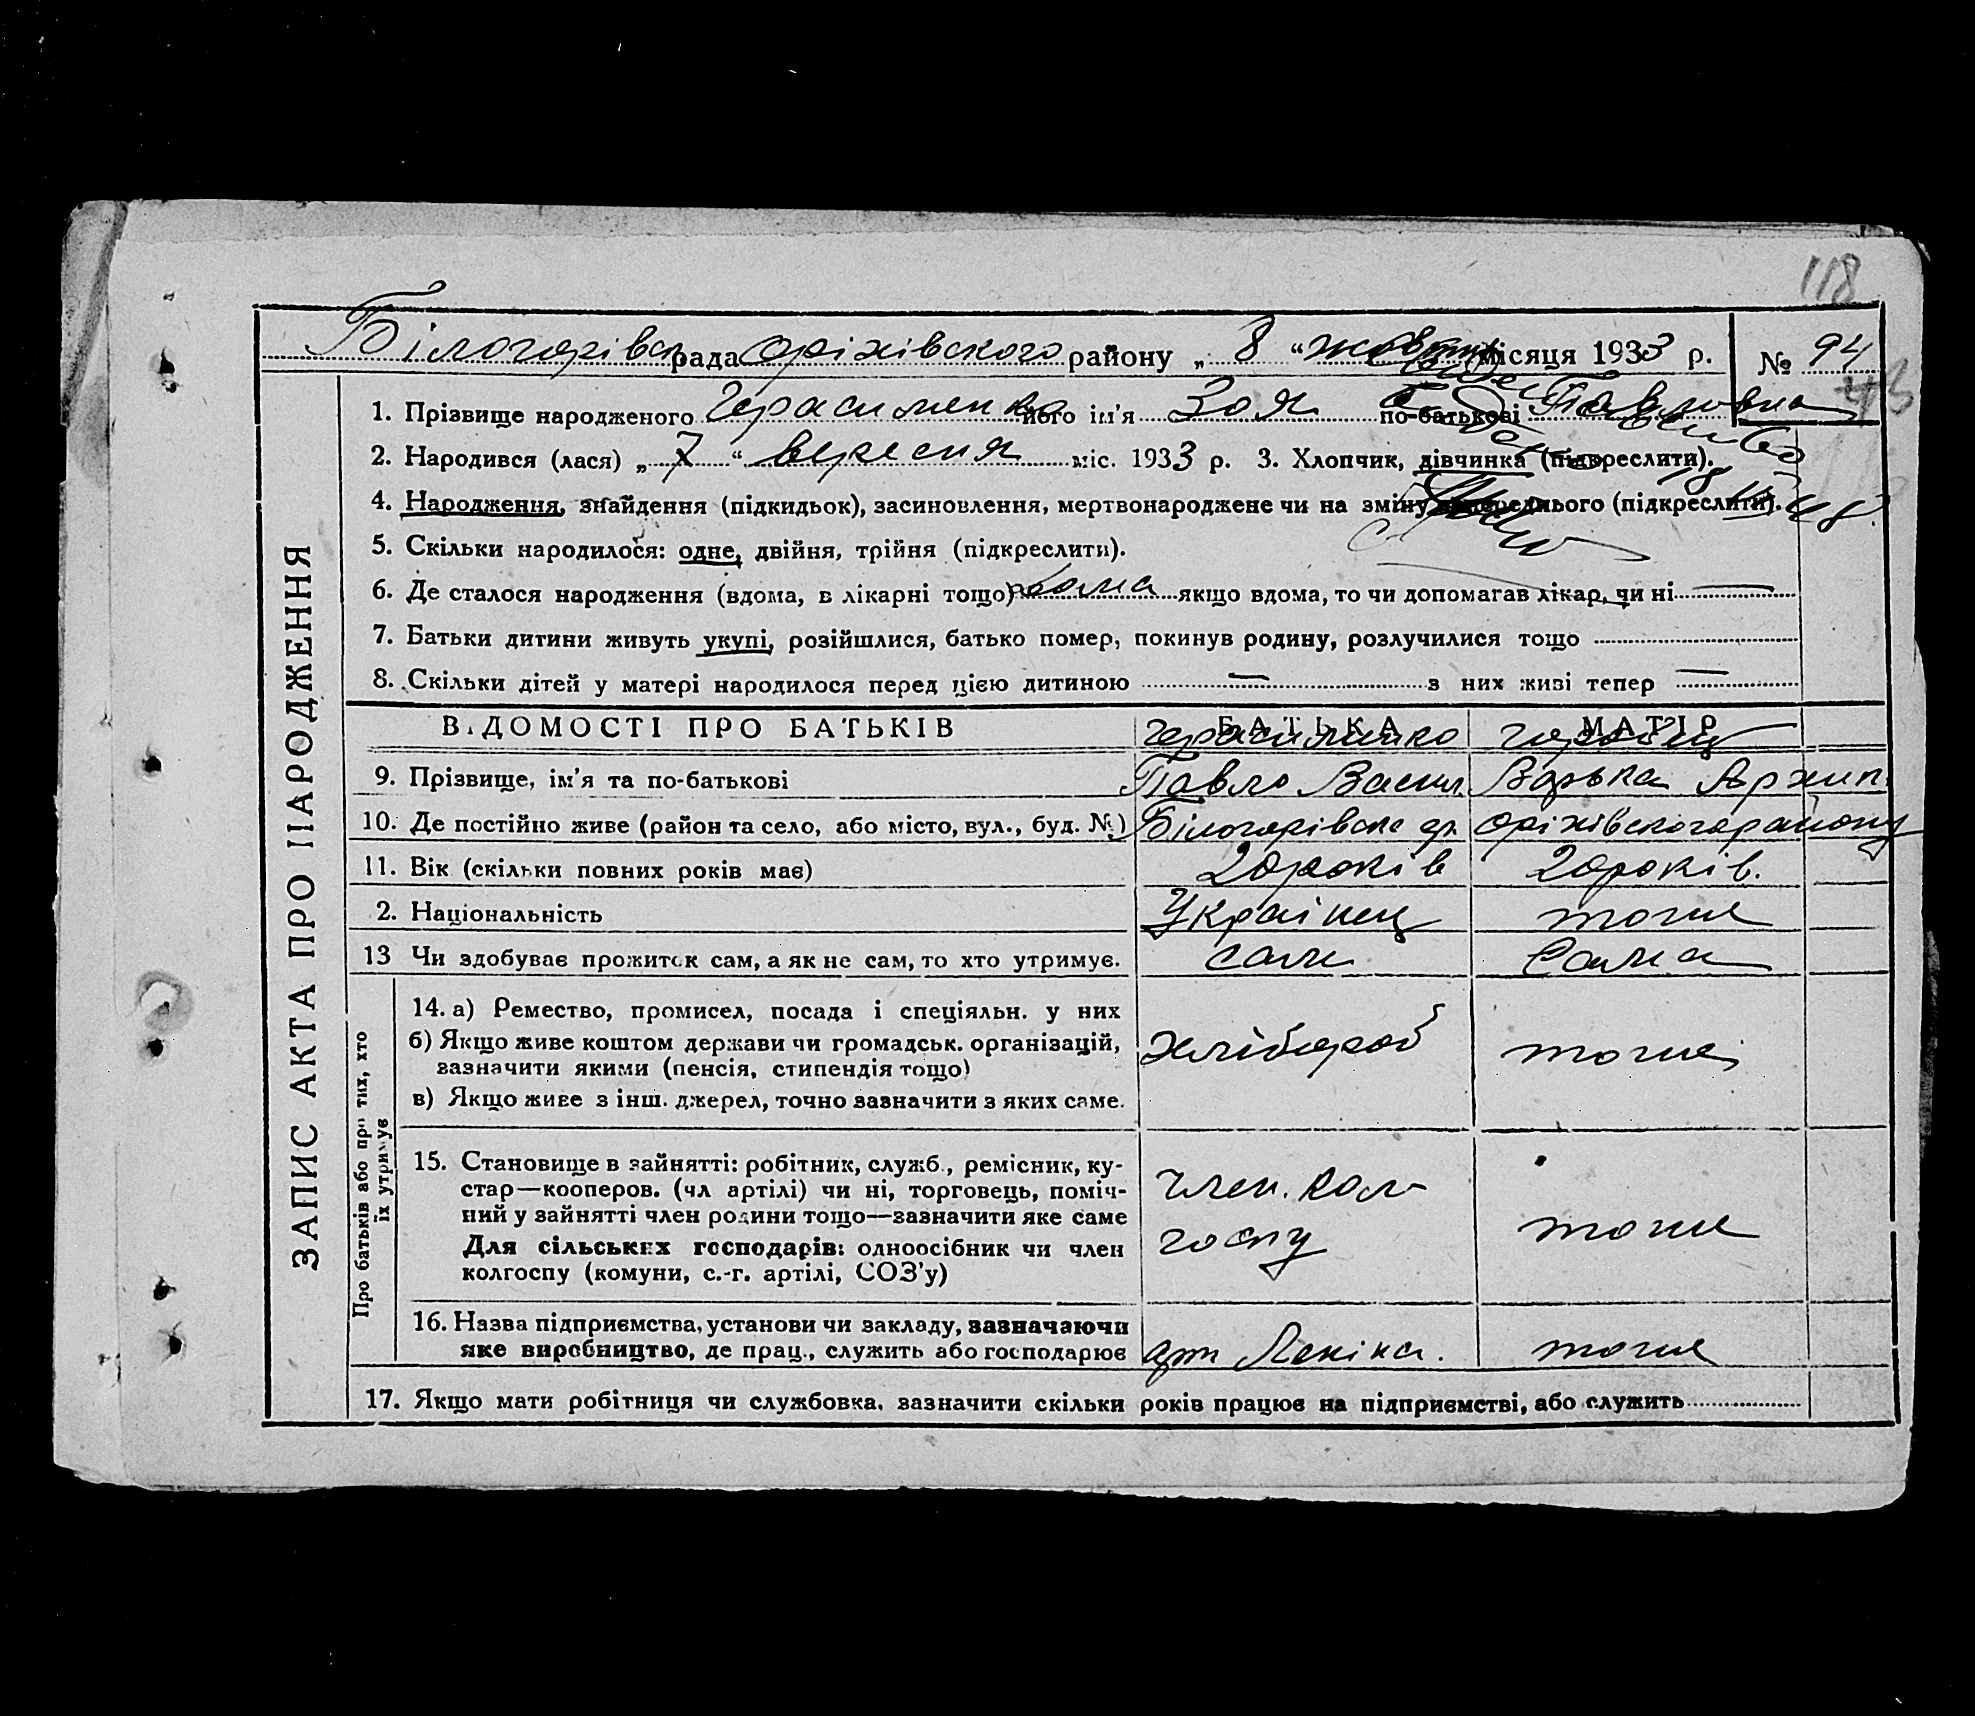 118
Білогорівск рада Оріхівського району „ 8 “ жовтня місяця 1933 р. № 94
1. Прізвище народженого Герасименко його ім'я Зоя по-батькові Павловна
2. Народився (лася) „ 7 “ вересня міс. 1933 р. 3. Хлопчик, дівчинка (підкреслити).
4. Народження, знайдення (підкидьок), засиновлення, мертвонароджене чи на зміну попереднього (підкреслити).
5. Скільки народилося: одне, двійня, трійня (підкреслити).
6. Де сталося народження (вдома, в лікарні тощо) вдома якщо вдома, то чи допомагав лікар, чи ні —
7. Батьки дитини живуть укупі, розійшлися, батько помер, покинув родину, розлучилися тощо
8. Скільки дітей у матері народилося перед цією дитиною — з них живі тепер —
ВІДОМОСТІ ПРО БАТЬКІВ БАТЬКА МАТІР
Герасименко
9. Прізвище, ім'я та по-батькові Павло Васил Варька Архип.
10. Де постійно живе (район та село, або місто, вул., буд. №) Білогорівка Оріхівського району
11. Вік (скільки повних років має) 20 років 20 років.
2. Національність Українец тоже
13 Чи здобуває прожиток сам, а як не сам, то хто утримує. сам Сама
14. а) Ремество, промисел, посада і спеціяльн. у них
б) Якщо живе коштом держави чи громадськ. організацій,
зазначити якими (пенсія, стипендія тощо)
хлібороб тоже
в) Якщо живе з інш. джерел, точно зазначити з яких саме.
15. Становище в зайнятті: робітник, служб., ремісник, ку-
стар—кооперов. (чл артілі) чи ні, торговець, поміч-
ний у зайнятті член родини тощо—зазначити яке саме
Для сільських господарів: одноосібник чи член
колгоспу (комуни, с.-г. артілі, СОЗ'у)
член. кол-
госпу тоже
16. Назва підприємства, установи чи закладу, зазначаючи
яке виробництво, де прац., служить або господарює арт Леніна. тоже
17. Якщо мати робітниця чи службовка, зазначити скільки років працює на підприємстві, або служить
ЗАПИС АКТА ПРО НАРОДЖЕННЯ
Про батьків або про тих, хто
їх утримує